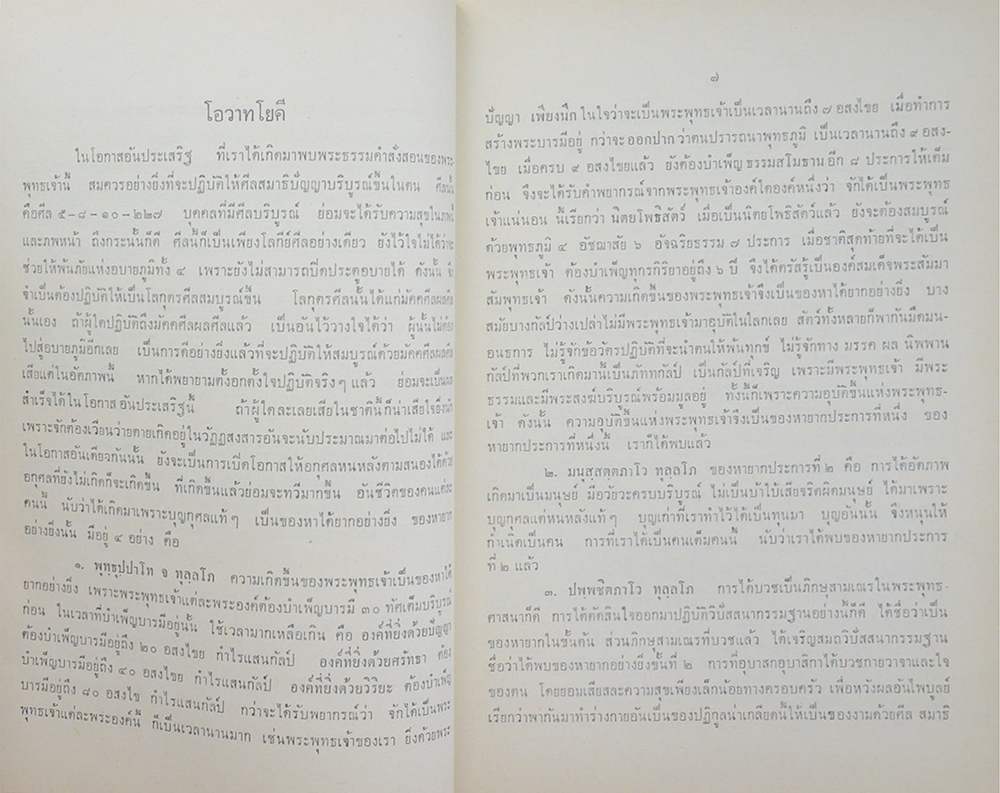 โอวาทโยคี
ในโอกาสอันประเสริฐ ที่เราได้เกิดมาพบพระธรรมคำสั่งสอนของพระ
พุทธเจ้านี้ สมควรอย่างยิ่งที่จะปฏิบัติให้ศีลสมาธิปัญญาบริบูรณ์ขึ้นในตน ศีลนั้น
คือศีล ๕-๘-๑๐-๒๒๗ บุคคลที่มีศีลบริบูรณ์ ย่อมจะได้รับความสุขในภพนี้
และภพหน้า ถึงกระนั้นก็ดี ศีลนี้ก็เป็นเพียงโลกีย์ศีลอย่างเดียว ยังไว้ใจไม่ได้ว่าจะ
ช่วยให้พ้นภัยแห่งอบายภูมิทั้ง ๔ เพราะยังไม่สามารถปิดประตูอบายได้ ดังนั้น จึง
จำเป็นต้องปฏิบัติให้เป็นโลกุตรศีลสมบูรณ์ขึ้น โลกุตรศีลนั้นได้แก่มัคคศีลผลศีล
นั้นเอง ถ้าผู้ใดปฏิบัติถึงมัคคศีลผลศีลแล้ว เป็นอันไว้วางใจได้ว่า ผู้นั้นไม่ต้อง
ไปสู่อบายภูมิอีกเลย เป็นการดีอย่างยิ่งแล้วที่จะปฏิบัติให้สมบูรณ์ด้วยมัคคศีลผลศีล
เสียแต่ในอัตภาพนี้ หากได้พยายามตั้งอกตั้งใจปฏิบัติจริงๆ แล้ว ย่อมจะเป็นผล
สำเร็จได้ในโอกาสอันประเสริฐนี้ ถ้าผู้ใดละเลยเสียในชาตินี้ก็น่าเสียใจยิ่งนัก
เพราะจักต้องเวียนว่ายตายเกิดอยู่ในวัฏฏสงสารอันจะนับประมาณมาต่อไปไม่ได้ และ
ในโอกาสอันเดียวกันนั้น ยังจะเป็นการเปิดโอกาสให้อกุศลหนหลังตามสนองได้ด้วย
อกุศลที่ยังไม่เกิดก็จะเกิดขึ้น ที่เกิดขึ้นแล้วย่อมจะทวีมากขึ้น อันชีวิตของคนแต่ละ
คนนี้ นับว่าได้เกิดมาเพราะบุญกุศลแท้ๆ เป็นของหาได้ยากอย่างยิ่ง ของหายาก
อย่างยิ่งนั้น มีอยู่ ๔ อย่าง คือ
๑. พุทฺธุปฺปาโท จ ทุลฺลโภ ความเกิดขึ้นของพระพุทธเจ้าเป็นของหาได้
ยากอย่างยิ่ง เพราะพระพุทธเจ้าแต่ละพระองค์ต้องบำเพ็ญบารมี ๓๐ ทัศเต็มบริบูรณ์
ก่อน ในเวลาที่บำเพ็ญบารมีอยู่นั้น ใช้เวลามากเหลือเกิน คือ องค์ที่ยิ่งด้วยปัญญา
ต้องบำเพ็ญบารมีอยู่ถึง ๒๐ อสงไขย กำไรแสนกัลป์ องค์ที่ยิ่งด้วยศรัทธา ต้อง
บำเพ็ญบารมีอยู่ถึง ๔๐ อสงไขย กำไรแสนกัลป์ องค์ที่ยิ่งด้วยวิริยะ ต้องบำเพ็ญ
บารมีอยู่ถึง ๘๐ อสงไข กำไรแสนกัลป์ กว่าจะได้รับพยากรณ์ว่า จักได้เป็นพระ
พุทธเจ้าแต่ละพระองค์นี้ ก็เป็นเวลานานมาก เช่นพระพุทธเจ้าของเรา ยิ่งด้วยพระ
๗
ปัญญา เพียงนึกในใจว่าจะเป็นพระพุทธเจ้าเป็นเวลานานถึง ๗ อสงไขย เมื่อทำการ
สร้างพระบารมีอยู่ กว่าจะออกปากว่าตนปรารถนาพุทธภูมิ เป็นเวลานานถึง ๙ อสง-
ไขย เมื่อครบ ๙ อสงไขยแล้ว ยังต้องบำเพ็ญธรรมสโมธานอีก ๘ ประการให้เต็ม
ก่อน จึงจะได้รับคำพยากรณ์จากพระพุทธเจ้าองค์ใดองค์หนึ่งว่า จักได้เป็นพระพุทธ
เจ้าแน่นอน นี้เรียกว่า นิตยโพธิสัตว์ เมื่อเป็นนิตยโพธิสัตว์แล้ว ยังจะต้องสมบูรณ์
ด้วยพุทธภูมิ ๔ อัชฌาสัย ๖ อัจฉริยธรรม ๗ ประการ เมื่อชาติสุดท้ายที่จะได้เป็น
พระพุทธเจ้า ต้องบำเพ็ญทุกกิริยาอยู่ถึง ๖ ปี จึงได้ตรัสรู้เป็นองค์สมเด็จพระสัมมา
สัมพุทธเจ้า ดังนั้นความเกิดขึ้นของพระพุทธเจ้าจึงเป็นของหาได้ยากอย่างยิ่ง บาง
สมัยบางกัลป์ว่างเปล่าไม่มีพระพุทธเจ้ามาอุบัติในโลกเลย สัตว์ทั้งหลายก็พากันมืดมน-
อนธการ ไม่รู้จักข้อวัตรปฏิบัติที่จะนำตนให้พ้นทุกข์ ไม่รู้จักทาง มรรค ผล นิพพาน
กัลป์ที่พวกเราเกิดมานี้เป็นภัททกัลป์ เป็นกัลป์ที่เจริญ เพราะมีพระพุทธเจ้า มีพระ
ธรรมและมีพระสงฆ์บริบูรณ์พร้อมมูลอยู่ ทั้งนี้ก็เพราะความอุบัติขึ้นแห่งพระพุทธ-
เจ้า ดังนั้น ความอุบัติขึ้นแห่งพระพุทธเจ้าจึงเป็นของหายากประการที่หนึ่ง ของ
หายากประการที่หนึ่งนี้ เราก็ได้พบแล้ว
๒. มนุสฺสตฺตภาโว ทุลฺลโภ ของหายากประการที่ ๒ คือ การได้อัตภาพ
เกิดมาเป็นมนุษย์ มีอวัยวะครบบริบูรณ์ ไม่เป็นบ้าใบ้เสียจริตผิดมนุษย์ ได้มาเพราะ
บุญกุศลแต่หนหลังแท้ๆ บุญเก่าที่เราทำไว้ได้เป็นทุนมา บุญอันนั้น จึงหนุนให้
กำเนิดเป็นคน การที่เราได้เป็นคนเต็มคนนี้ นับว่าเราได้พบของหายากประการ
ที่ ๒ แล้ว
๓. ปพฺพชิตภาโว ทุลฺลโภ การได้บวชเป็นภิกษุสามเณรในพระพุทธ-
ศาสนาก็ดี การได้ตัดสินใจออกมาปฏิบัติวิปัสสนากรรมฐานอย่างนี้ก็ดี ได้ชื่อว่าเป็น
ของหายากในขั้นต้น ส่วนภิกษุสามเณรที่บวชแล้ว ได้เจริญสมถวิปัสสนากรรมฐาน
ชื่อว่าได้พบของหายากอย่างยิ่งขั้นที่ ๒ การที่อุบาสกอุบาสิกาได้บวชกายวาจาและใจ
ของตน โดยยอมเสียสละความสุขเพียงเล็กน้อยทางครอบครัว เพื่อหวังผลอันไพบูลย์
เรียกว่าพากันมาทำร่างกายอันเป็นของปฏิกูลน่าเกลียดนี้ให้เป็นของงามด้วยศีล สมาธิ